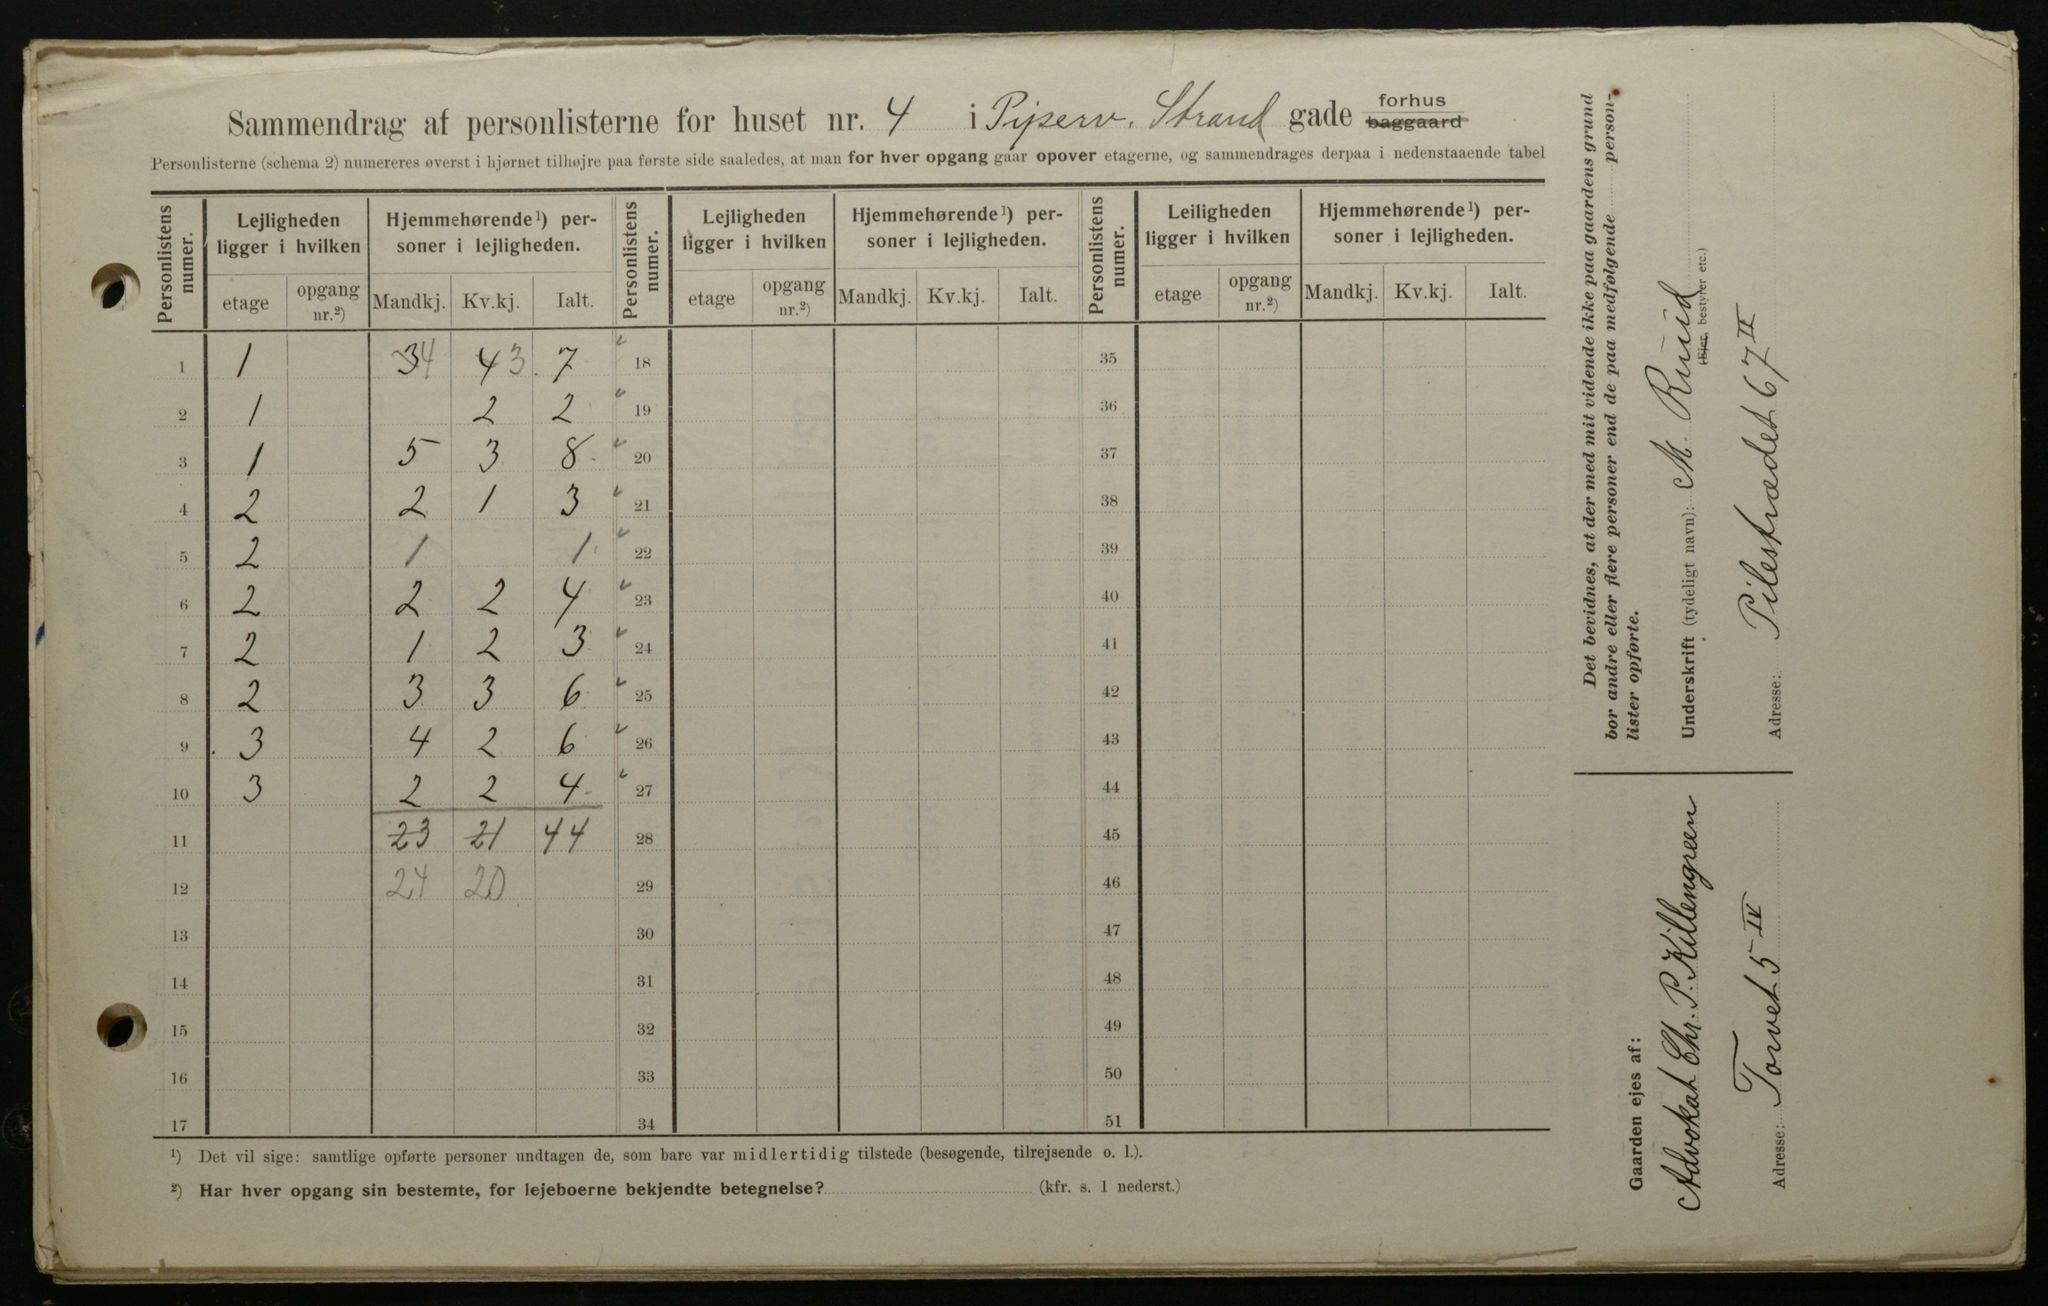 Sammendrag af personlisterne for huset nr. 4 i Piperv. Strand gade forhus baggaard
Personlisterne (schema 2) numereres øverst i hjørnet tilhøjre paa første side saaledes, at man for hver opgang gaar opover etagerne, og sammendrages derpaa i nedenstaaende tabel
Personlistens numer. Lejligheden ligger i hvilken Hjemmehørende¹) personer i lejligheden. Personlistens numer. Lejligheden ligger i hvilken Hjemmehørende¹) personer i lejligheden. Personlistens numer. Leiligheden ligger i hvilken Hjemmehørende¹) personer i lejligheden.
etage opgang nr.²) Mandkj. Kv.kj. Ialt. etage opgang nr.²) Mandkj. Kv.kj. Ialt. etage opgang nr.²) Mandkj. Kv.kj. Ialt.
1 1 3 4 4 3 7 18 35
2 1 2 2 19 36
3 1 5 3 8 20 37
4 2 2 1 3 21 38
5 2 1 1 22 39
6 2 2 2 4 23 40
7 2 1 2 3 24 41
8 2 3 3 6 25 42
9 3 4 2 6 26 43
10 3 2 2 4 27 44
11 23 21 44 28 45
12 24 20 29 46
13 30 47
14 31 48
15 32 49
16 33 50
17 34 51
¹) Det vil sige: samtlige opførte personer undtagen de, som bare var midlertidig tilstede (besøgende, tilrejsende o. l.).
²) Har hver opgang sin bestemte, for lejeboerne bekjendte betegnelse? (kfr. s. 1 nederst.)
Det bevidnes, at der med mit vidende ikke paa gaardens grund
bor andre eller flere personer end de paa medfølgende person-
lister opførte.
Underskrift (tydeligt navn): M. Ruud
(Ejer, bestyrer etc.)
Adresse: Pilestrædet 67 II
Gaarden ejes af:
Advokat Chr. P. Killengreen
Adresse: Torvet 5 IV